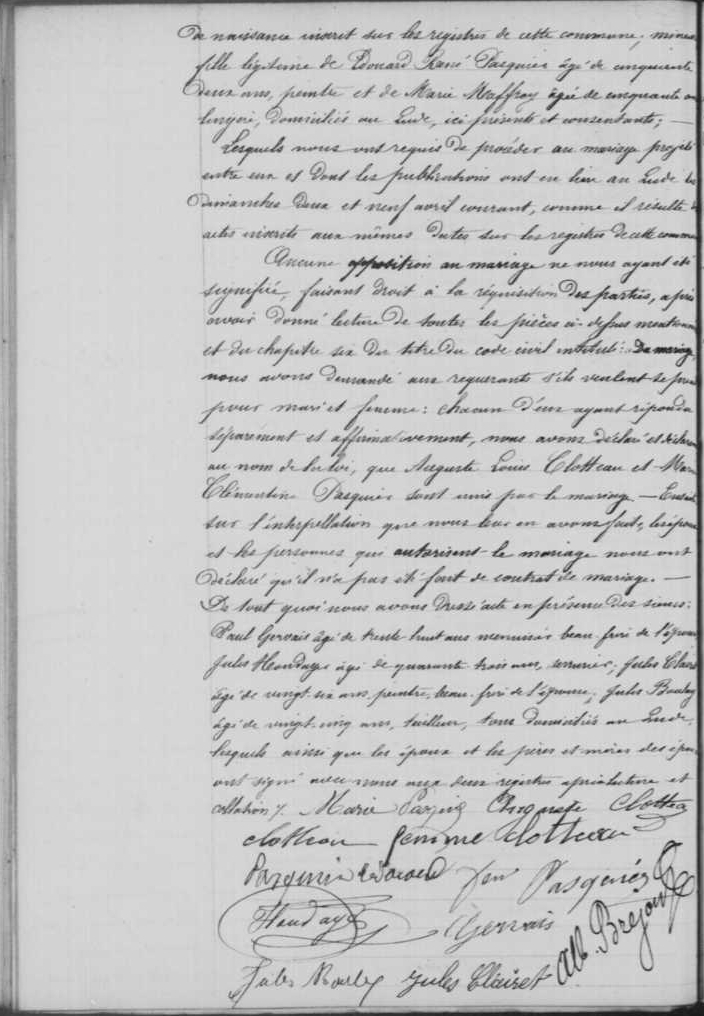 de naissance inscrit sur les registres de cette commune, mineure
fille légitime de Edouard René Pasquier âgé de cinquante
deux ans, peintre et de Marie Maffray âgée de cinquante ans
lingère, domiciliés au Lude, ici présents et consentants; —
Lesquels nous ont requis de procéder au mariage projeté
entre eux et dont les publications ont eu lieu au Lude les
dimanches deux et neuf avril courant, comme il résulte des
actes inscrits aux mêmes dates sur les registres de cette commune
Aucune opposition au mariage ne nous ayant été
signifiée, faisant droit à la réquisition des parties, après
avoir donné lecture de toutes les pièces ci-dessus mentionnées
et du chapitre six du titre du code civil intitulé: Du mariage,
nous avons demandé aux requérants s'ils veulent se prendre
pour mari et femme: chacun d'eux ayant répondu
séparément et affirmativement, nous avons déclaré et déclarons
au nom de la loi, que Auguste Louis Clotteau et Marie
Clémentine Pasquier sont unis par le mariage. — Ensuite
sur l'interpellation que nous leur en avons faite, les époux
et les personnes qui autorisent le mariage nous ont
déclaré qu'il n'a pas été fait de contrat de mariage. —
De tout quoi nous avons dressé acte en présence des sieurs:
Paul Gervais âgé de trente huit ans menuisier beau-frère de l'épouse
Jules Houdayer âgé de quarante trois ans, serrurier, Jules Clairet
âgé de vingt-six ans, peintre, beau-frère de l'épouse; Jules Boulay
âgé de vingt-cinq ans, tailleur, tous domiciliés au Lude,
lesquels ainsi que les époux et les pères et mères des époux
ont signé avec nous aux deux registres après lecture et
collation /. Marie Pasquier Auguste Clotteau
Clotteau femme Clotteau
Pasquier Edouard fem Pasquier
Houdayer Gervais Alb. Brejon
Jules Boulay Jules Clairet